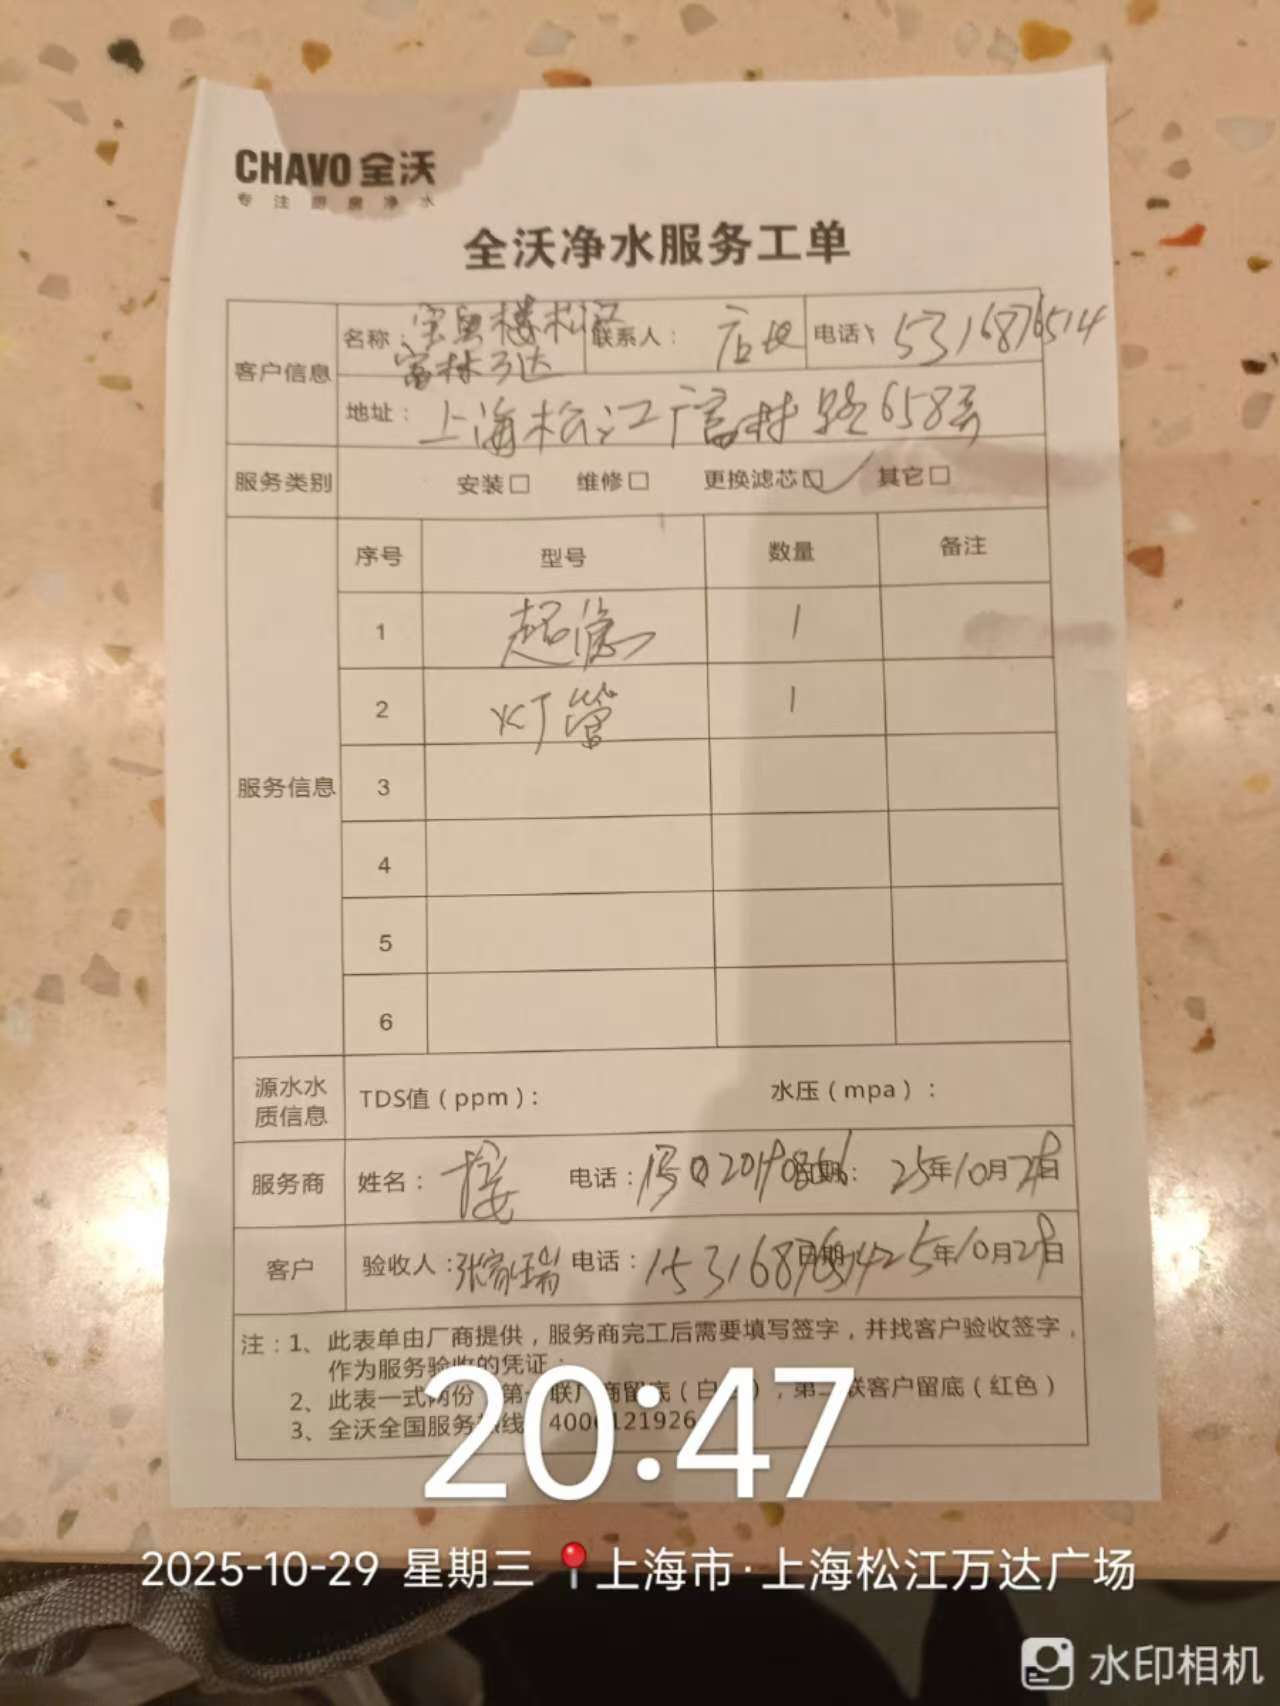 CHAVO 全沃
专注厨房净水
全沃净水服务工单
客户信息
名称：
富林万达
联系人： 店长
电话： 15316876514
地址： 上海松江广富林路658弄
服务类别 安装□ 维修□ 更换滤芯☑ 其它□
服务信息
序号 型号 数量 备注
1 超滤 1
2 灯管 1
3
4
5
6
源水水质信息 TDS值（ppm）： 水压（mpa）：
服务商 姓名： 电话： 日期： 25年10月29日
客户 验收人： 电话： 15316876514 日期： 25年10月29日
注：1、此表单由厂商提供，服务商完工后需要填写签字，并找客户验收签字，
作为服务验收的凭证；
2、此表一式两份，第一联厂商留底（白色），第二联客户留底（红色）
3、全沃全国服务热线：4006121926
20:47
2025-10-29 星期三 上海市·上海松江万达广场
水印相机